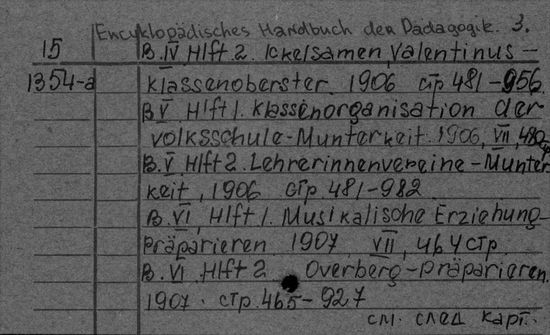 Encyklopädisches Handbuch der Pädagogik. 3.
15 B. IV, Hlft 2. Ickelsamen, Valentinus –
1354-a Klassenoberster. 1906 стр 481–956.
B. V, Hlft 1. Klassenorganisation der
Volksschule-Munterkeit. 1906, VII, 480
B. V, Hlft 2. Lehrerinnenvereine-Munter
keit, 1906 стр. 481–982
B. VI, Hlft 1. Musikalische Erziehung-
Präparieren 1907 VII, 464 стр
B. VI, Hlft 2 Overberg-Präparieren.
1907. стр. 465–927
см. след карт.